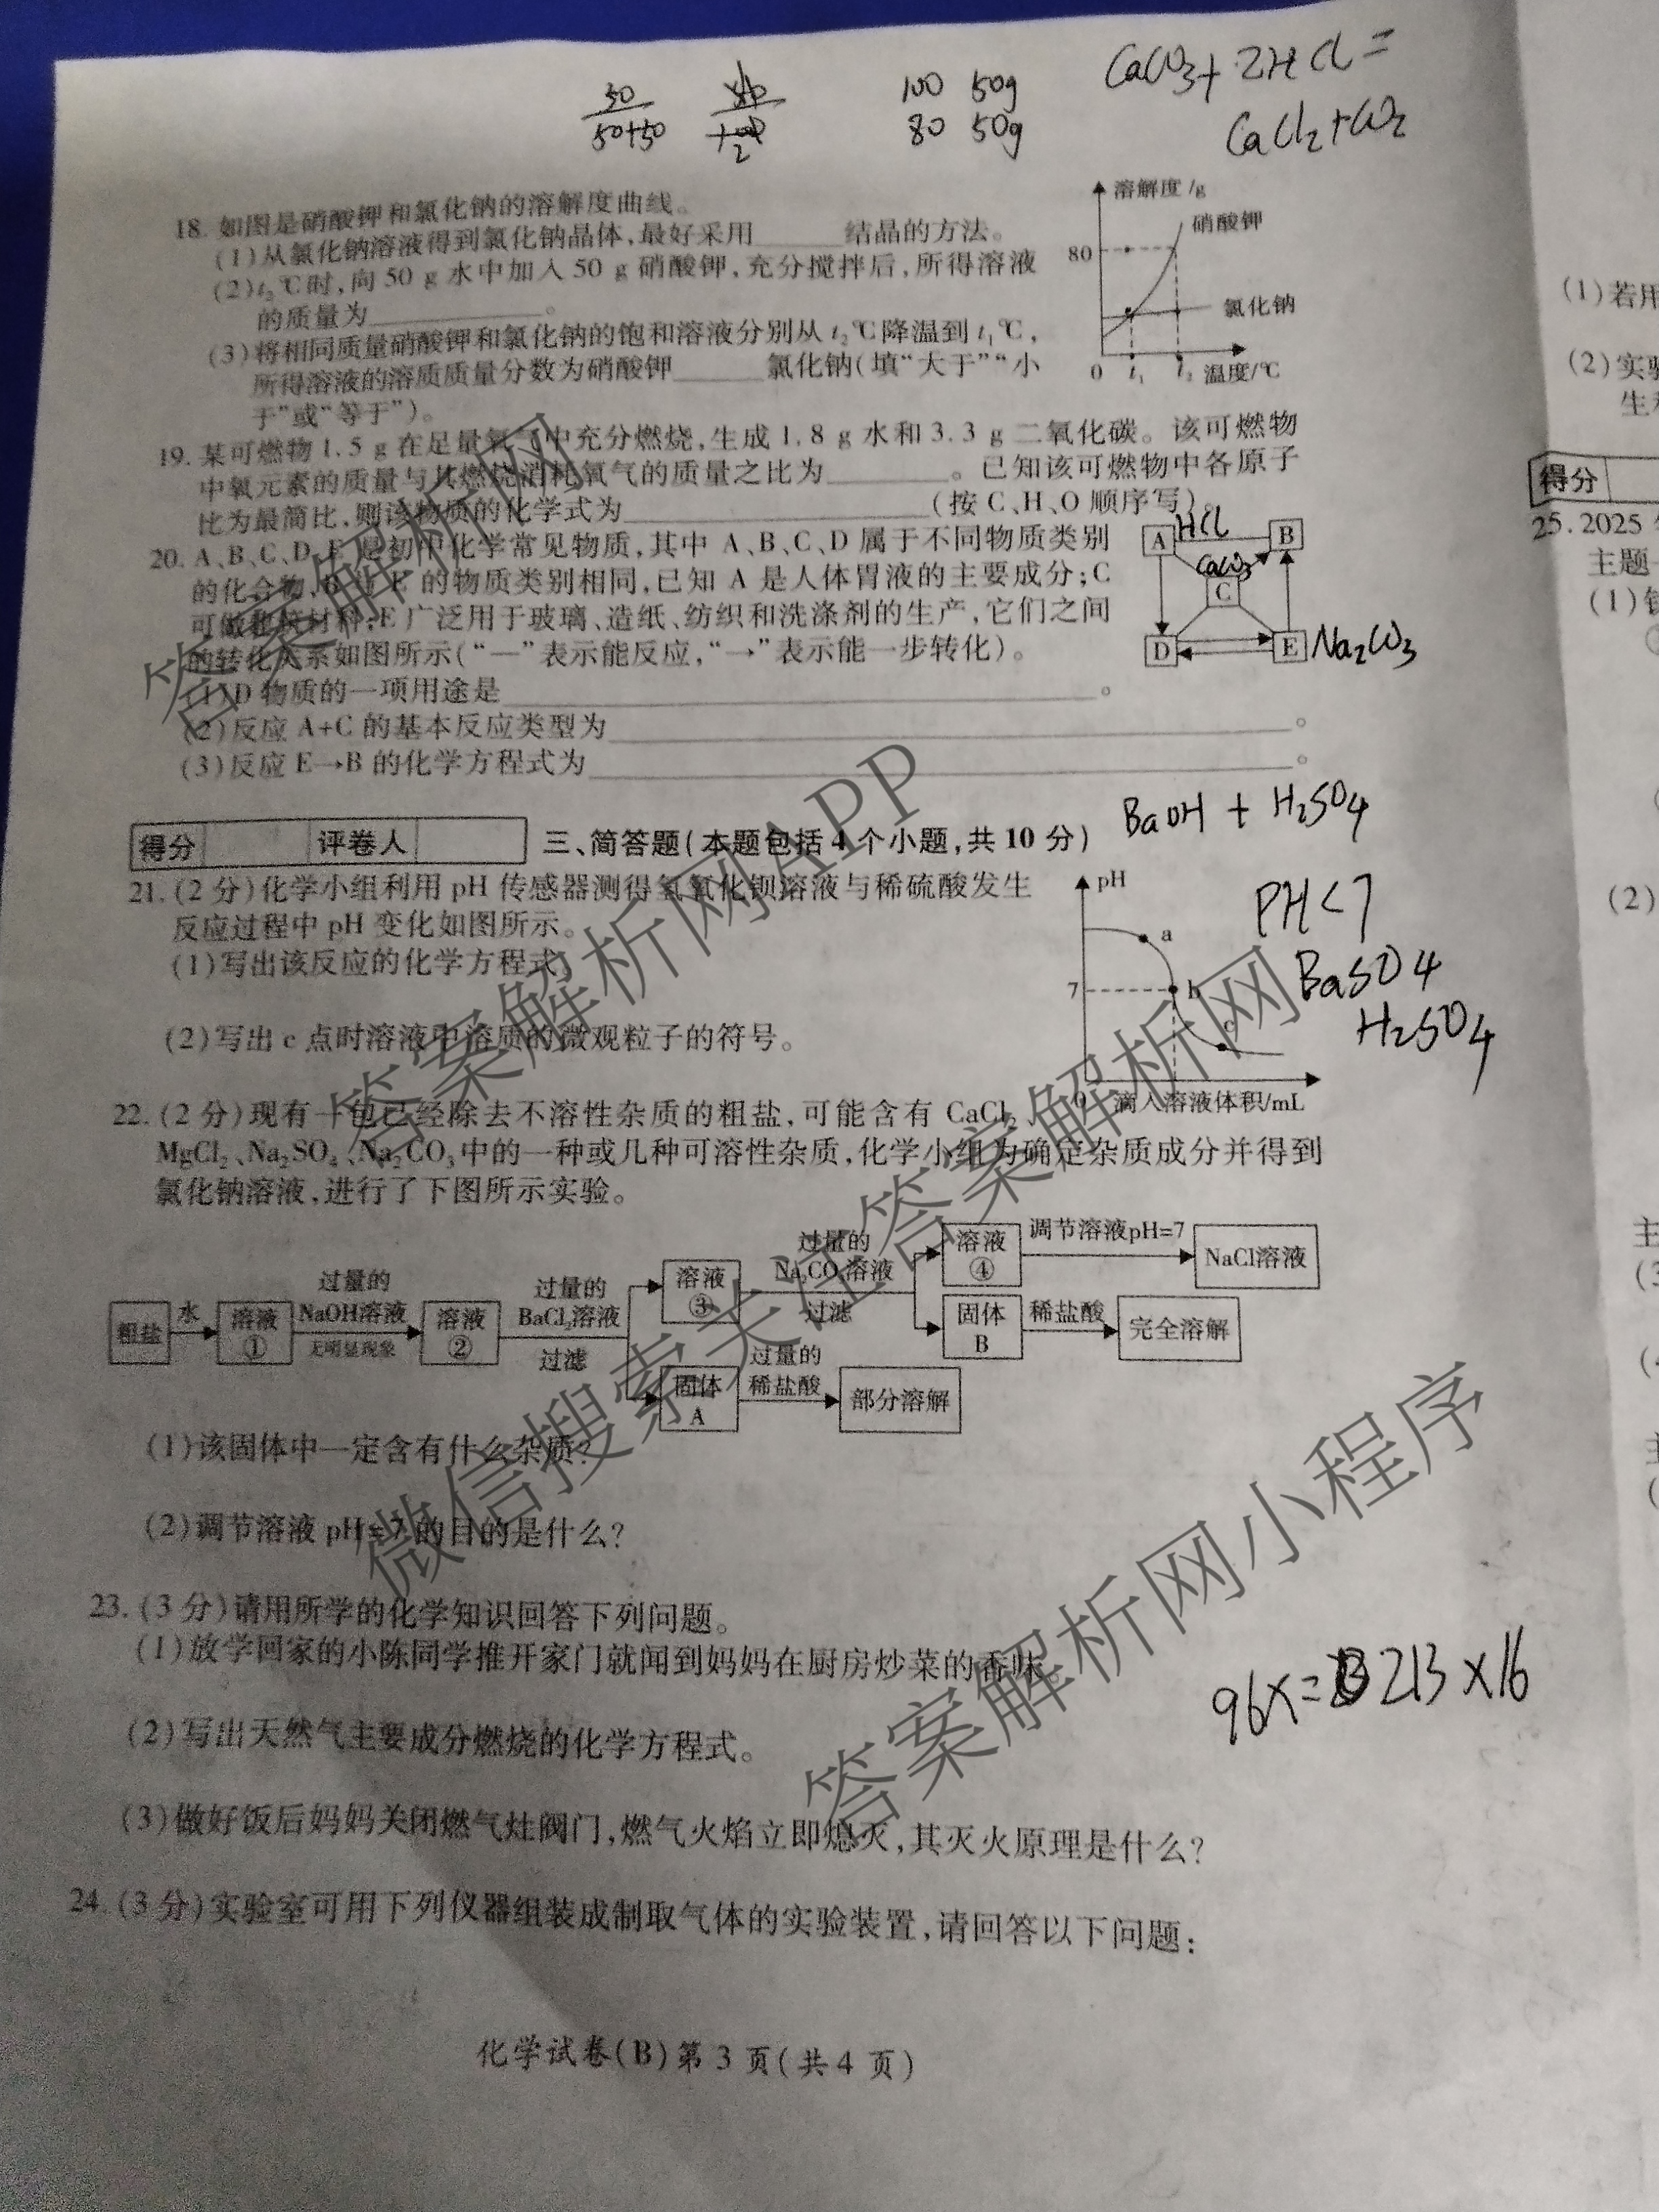 50/50+50 100 50g
80 50g
CaCO3+2HCl=
CaCl2+CO2
18. 如图是硝酸钾和氯化钠的溶解度曲线。
(1)从氯化钠溶液得到氯化钠晶体,最好采用______结晶的方法。
(2)t₂℃时,向50 g水中加入50 g硝酸钾,充分搅拌后,所得溶液
的质量为____________。
(3)将相同质量硝酸钾和氯化钠的饱和溶液分别从t₂℃降温到t₁℃,
所得溶液的溶质质量分数为硝酸钾______氯化钠(填“大于”“小
于”或“等于”)。
溶解度/g
硝酸钾
80
氯化钠
0 t₁ t₂ 温度/℃
19. 某可燃物1.5 g在足量氧气中充分燃烧,生成1.8 g水和3.3 g二氧化碳。该可燃物
中氧元素的质量与其燃烧消耗氧气的质量之比为________。已知该可燃物中各原子
比为最简比,则该物质的化学式为____________________(按C、H、O顺序写)。
20. A、B、C、D、E是初中化学常见物质,其中A、B、C、D属于不同物质类别
的化合物,B与E的物质类别相同,已知A是人体胃液的主要成分;C
可做建筑材料;E广泛用于玻璃、造纸、纺织和洗涤剂的生产,它们之间
的转化关系如图所示(“—”表示能反应,“→”表示能一步转化)。
A HCl B
CaCO3
C
D E Na2CO3
(1)D物质的一项用途是________________________。
(2)反应A+C的基本反应类型为________________________。
(3)反应E→B的化学方程式为________________________。
BaOH + H2SO4
得分 评卷人
三、简答题(本题包括4个小题,共10分)
21. (2分)化学小组利用pH传感器测得氢氧化钡溶液与稀硫酸发生
反应过程中pH变化如图所示。
(1)写出该反应的化学方程式。
(2)写出c点时溶液中溶质的微观粒子的符号。
pH
a
7 b
c
0 滴入溶液体积/mL
PH<7
BaSO4
H2SO4
22. (2分)现有一包已经除去不溶性杂质的粗盐,可能含有CaCl₂、
MgCl₂、Na₂SO₄、Na₂CO₃中的一种或几种可溶性杂质,化学小组为确定杂质成分并得到
氯化钠溶液,进行了下图所示实验。
粗盐 水 溶液① 过量的NaOH溶液 无明显现象 溶液② 过量的BaCl₂溶液 过滤
溶液③ 过量的Na₂CO₃溶液 过滤 溶液④ 调节溶液pH=7 NaCl溶液
固体B 稀盐酸 完全溶解
固体A 过量的稀盐酸 部分溶解
(1)该固体中一定含有什么杂质?
(2)调节溶液pH=7的目的是什么?
23. (3分)请用所学的化学知识回答下列问题。
(1)放学回家的小陈同学推开家门就闻到妈妈在厨房炒菜的香味。
(2)写出天然气主要成分燃烧的化学方程式。
96x= 213×16
(3)做好饭后妈妈关闭燃气灶阀门,燃气火焰立即熄灭,其灭火原理是什么?
24. (3分)实验室可用下列仪器组装成制取气体的实验装置,请回答以下问题:
化学试卷(B)第3页(共4页)
(1)若用
(2)实验
得分
25. 2025
主题
(1)
(2)
答案解析网
答案解析网APP
微信搜索关注答案解析网
答案解析网小程序